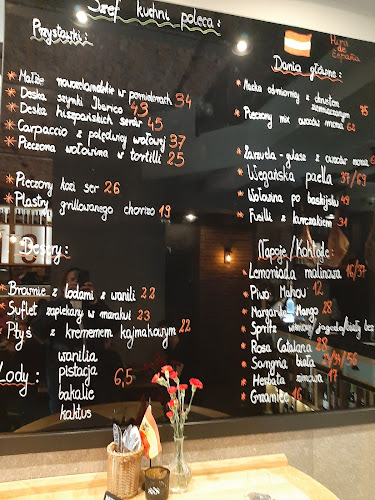 Szef kuchni poleca:
Przystawki:
* Małże nowozelandzkie w pomidorach 34
* Deska szynki Iberico 43
* Deska hiszpańskich serów 45
* Carpaccio z polędwicy wołowej 37
* Pieczona wołowina w tortilli 25
* Pieczony kozi ser 26
* Plastry grillowanego chorizo 19
Desery:
* Brownie z lodami z wanilii 22
* Suflet zapiekany w marakui 23
* Ptyś z kremem kajmakowym 22
Lody:
wanilia
pistacja
bakalie
kaktus
6,5
Hiszp
de
España
Dania główne:
* Macka ośmiornicy z chrustem
ziemniaczanym 75
* Pieczony mix owoców morza 62
* Zarzuela - gulasz z owoców morza
* Wegańska paella 37/69
* Wołowina po baskijsku 49
* Fusilli z kurczakiem 31
Napoje/Koktajle:
* Lemoniada malinowa 16/37
* Piwo Mahou 12
* Margarita Mango 28
* Spritz
* Rosa Catalana 28
* Sangria biała
* Herbata zimowa 17
* Grzaniec 16